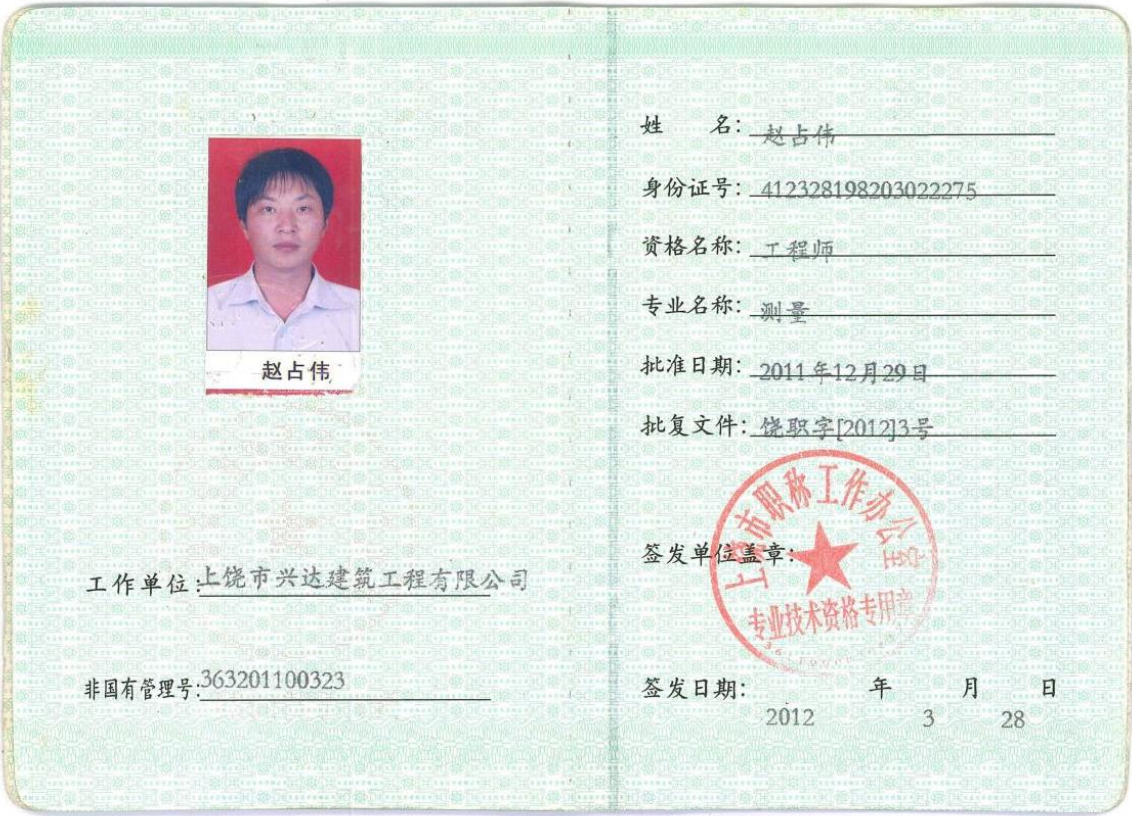 赵占伟
工作单位:上饶市兴达建筑工程有限公司
非国有管理号:363201100323
姓 名:赵占伟
身份证号:412328198203022275
资格名称:工程师
专业名称:测量
批准日期:2011年12月29日
批复文件:饶职字[2012]3号
上饶市职称工作办公室
签发单位盖章:
专业技术资格专用章
签发日期: 年 月 日
2012 3 28